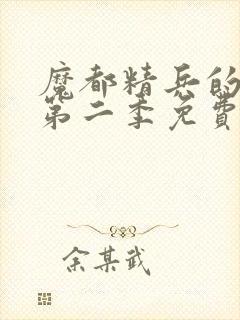 魔都精兵的
第二季免費
余某武